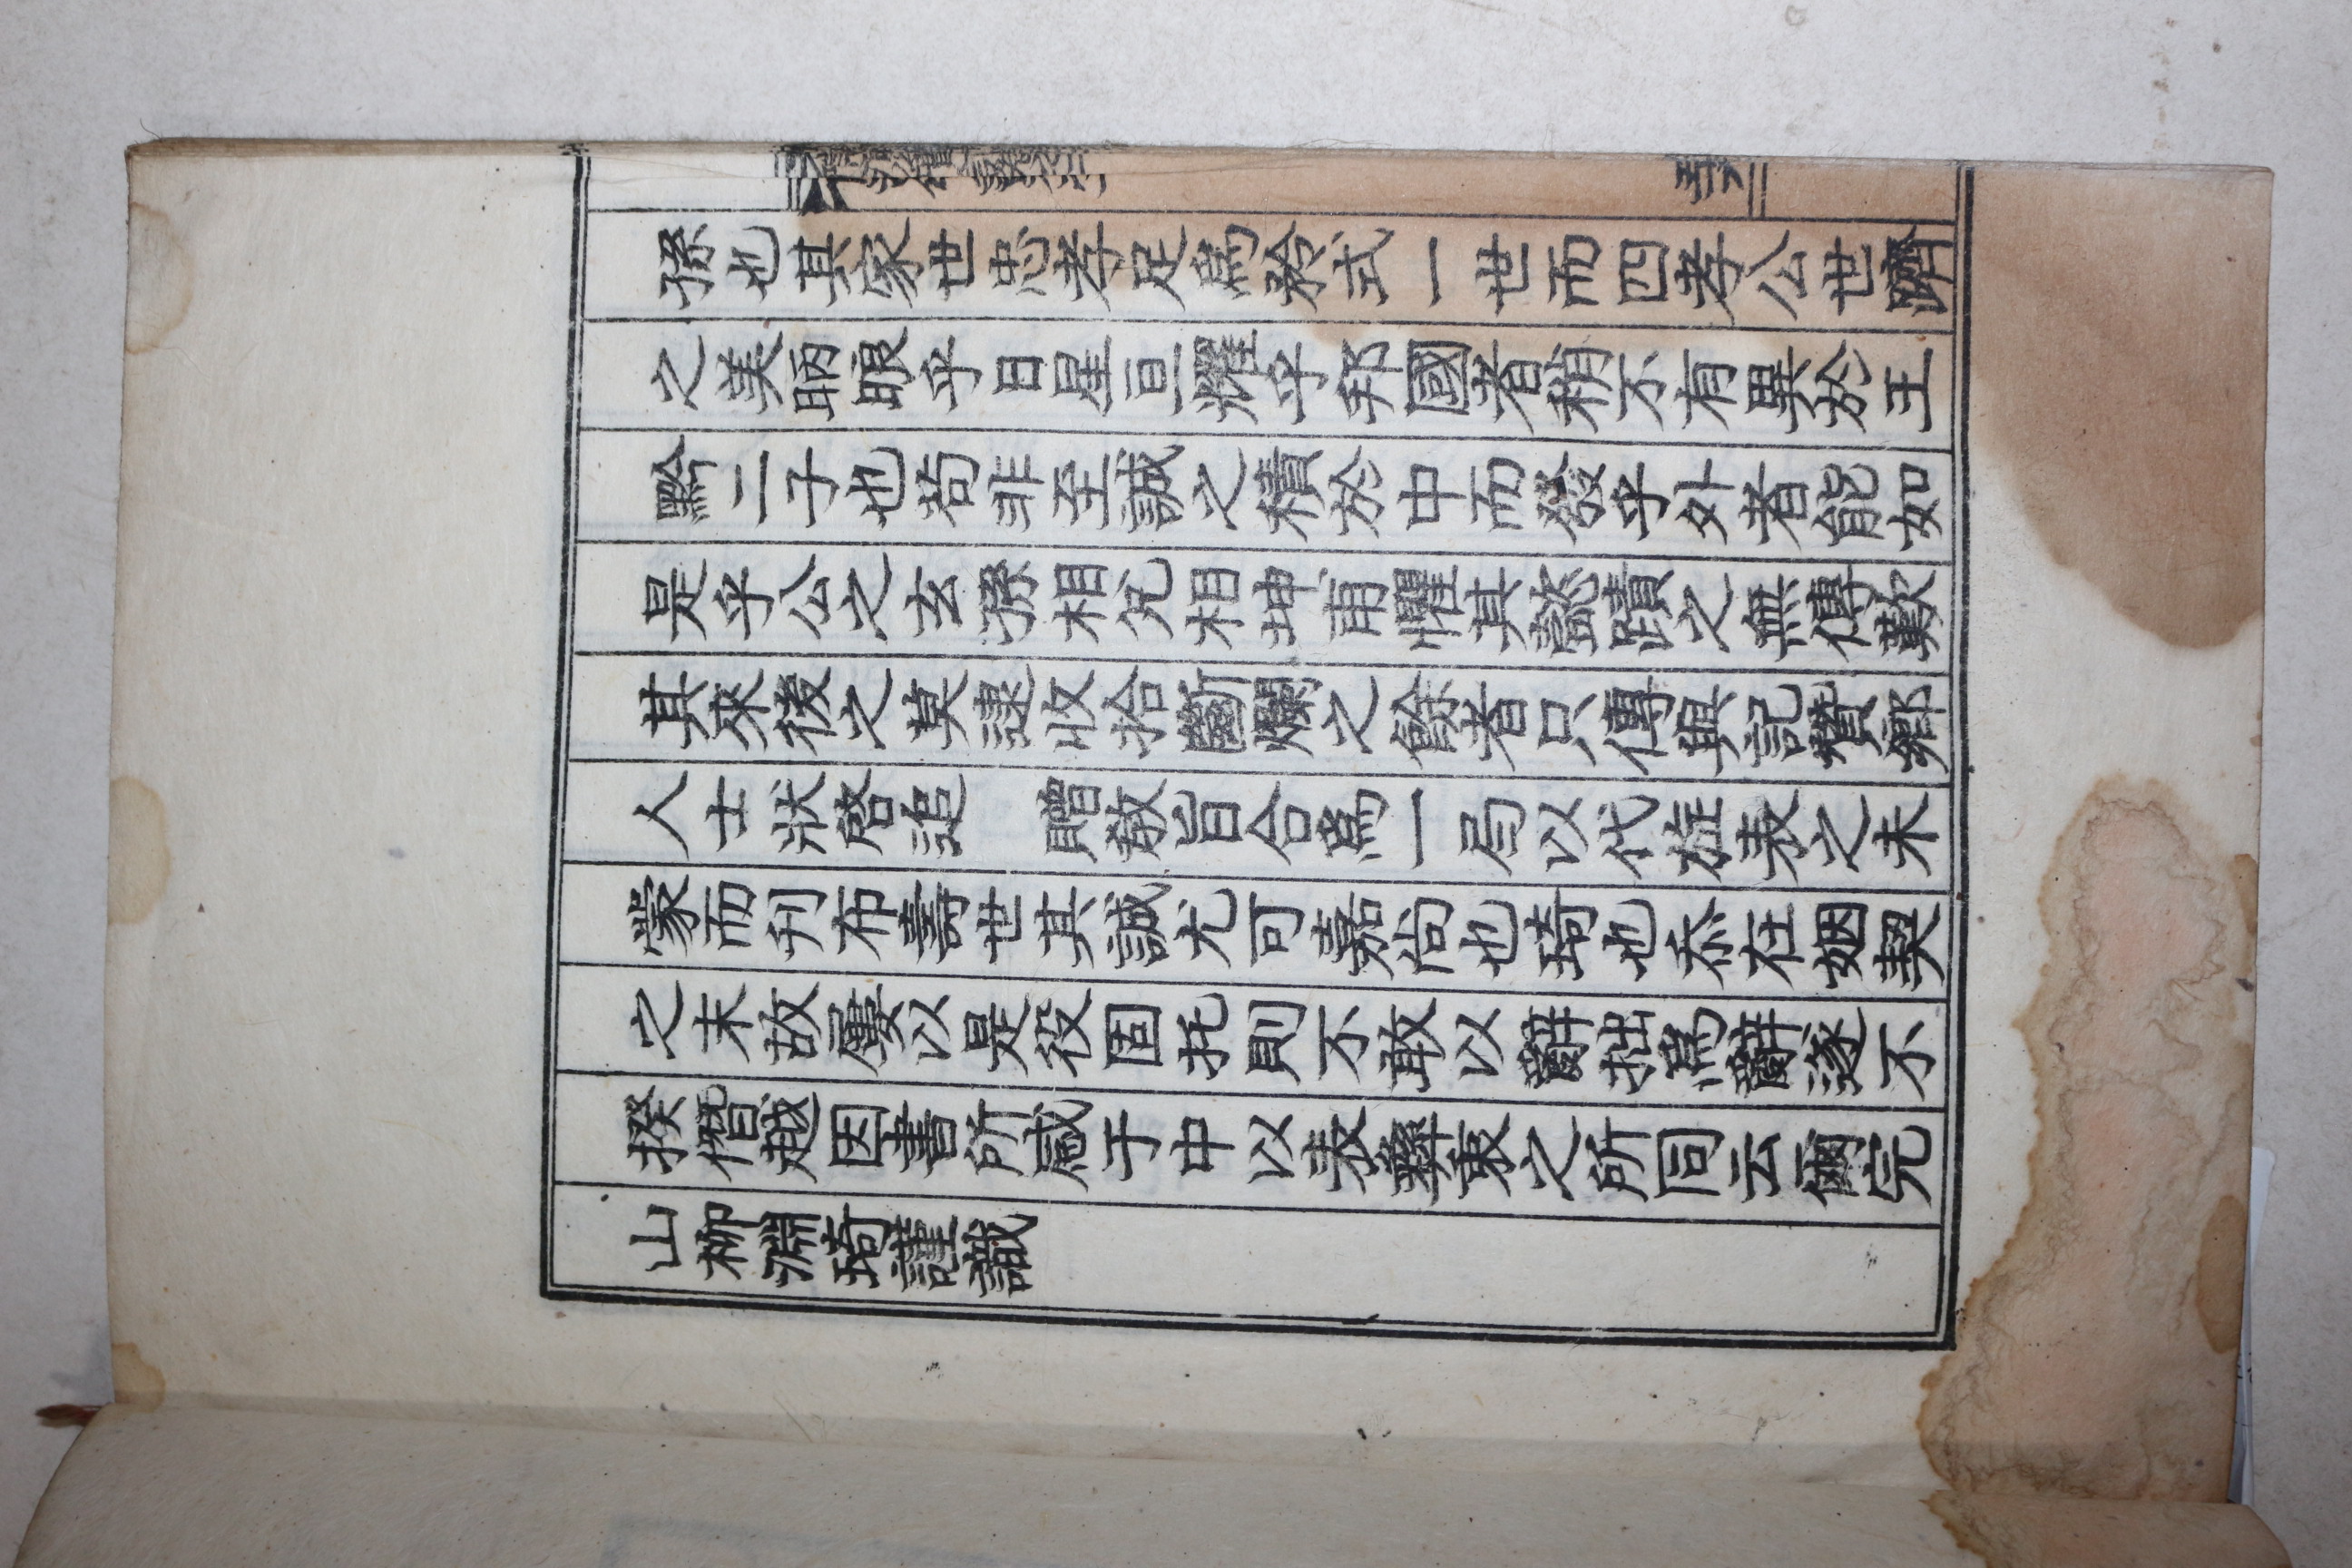 孫也其家世忠孝足爲矜式一世而四孝公世躋
之美昞眼乎日星亘耀乎邦國者稍不有異於王
黔二子也苟非至誠之積於中而發乎外者能如
是乎公之玄孫相允相坤甫懼其懿蹟之無傳歎
其來後之莫逮收拾斷爛之餘者只傳與記贊鄉
人士狀啓追 贈敎旨合爲一局以代旌表之未
蒙而刊布壽世其誠尤可嘉尚也琦也忝在姻契
之末故屢以是役固托則不敢以辭拙爲辭遂不
揆僭越因書所感于中以表彝衷之所同云爾完
山柳淵琦謹識